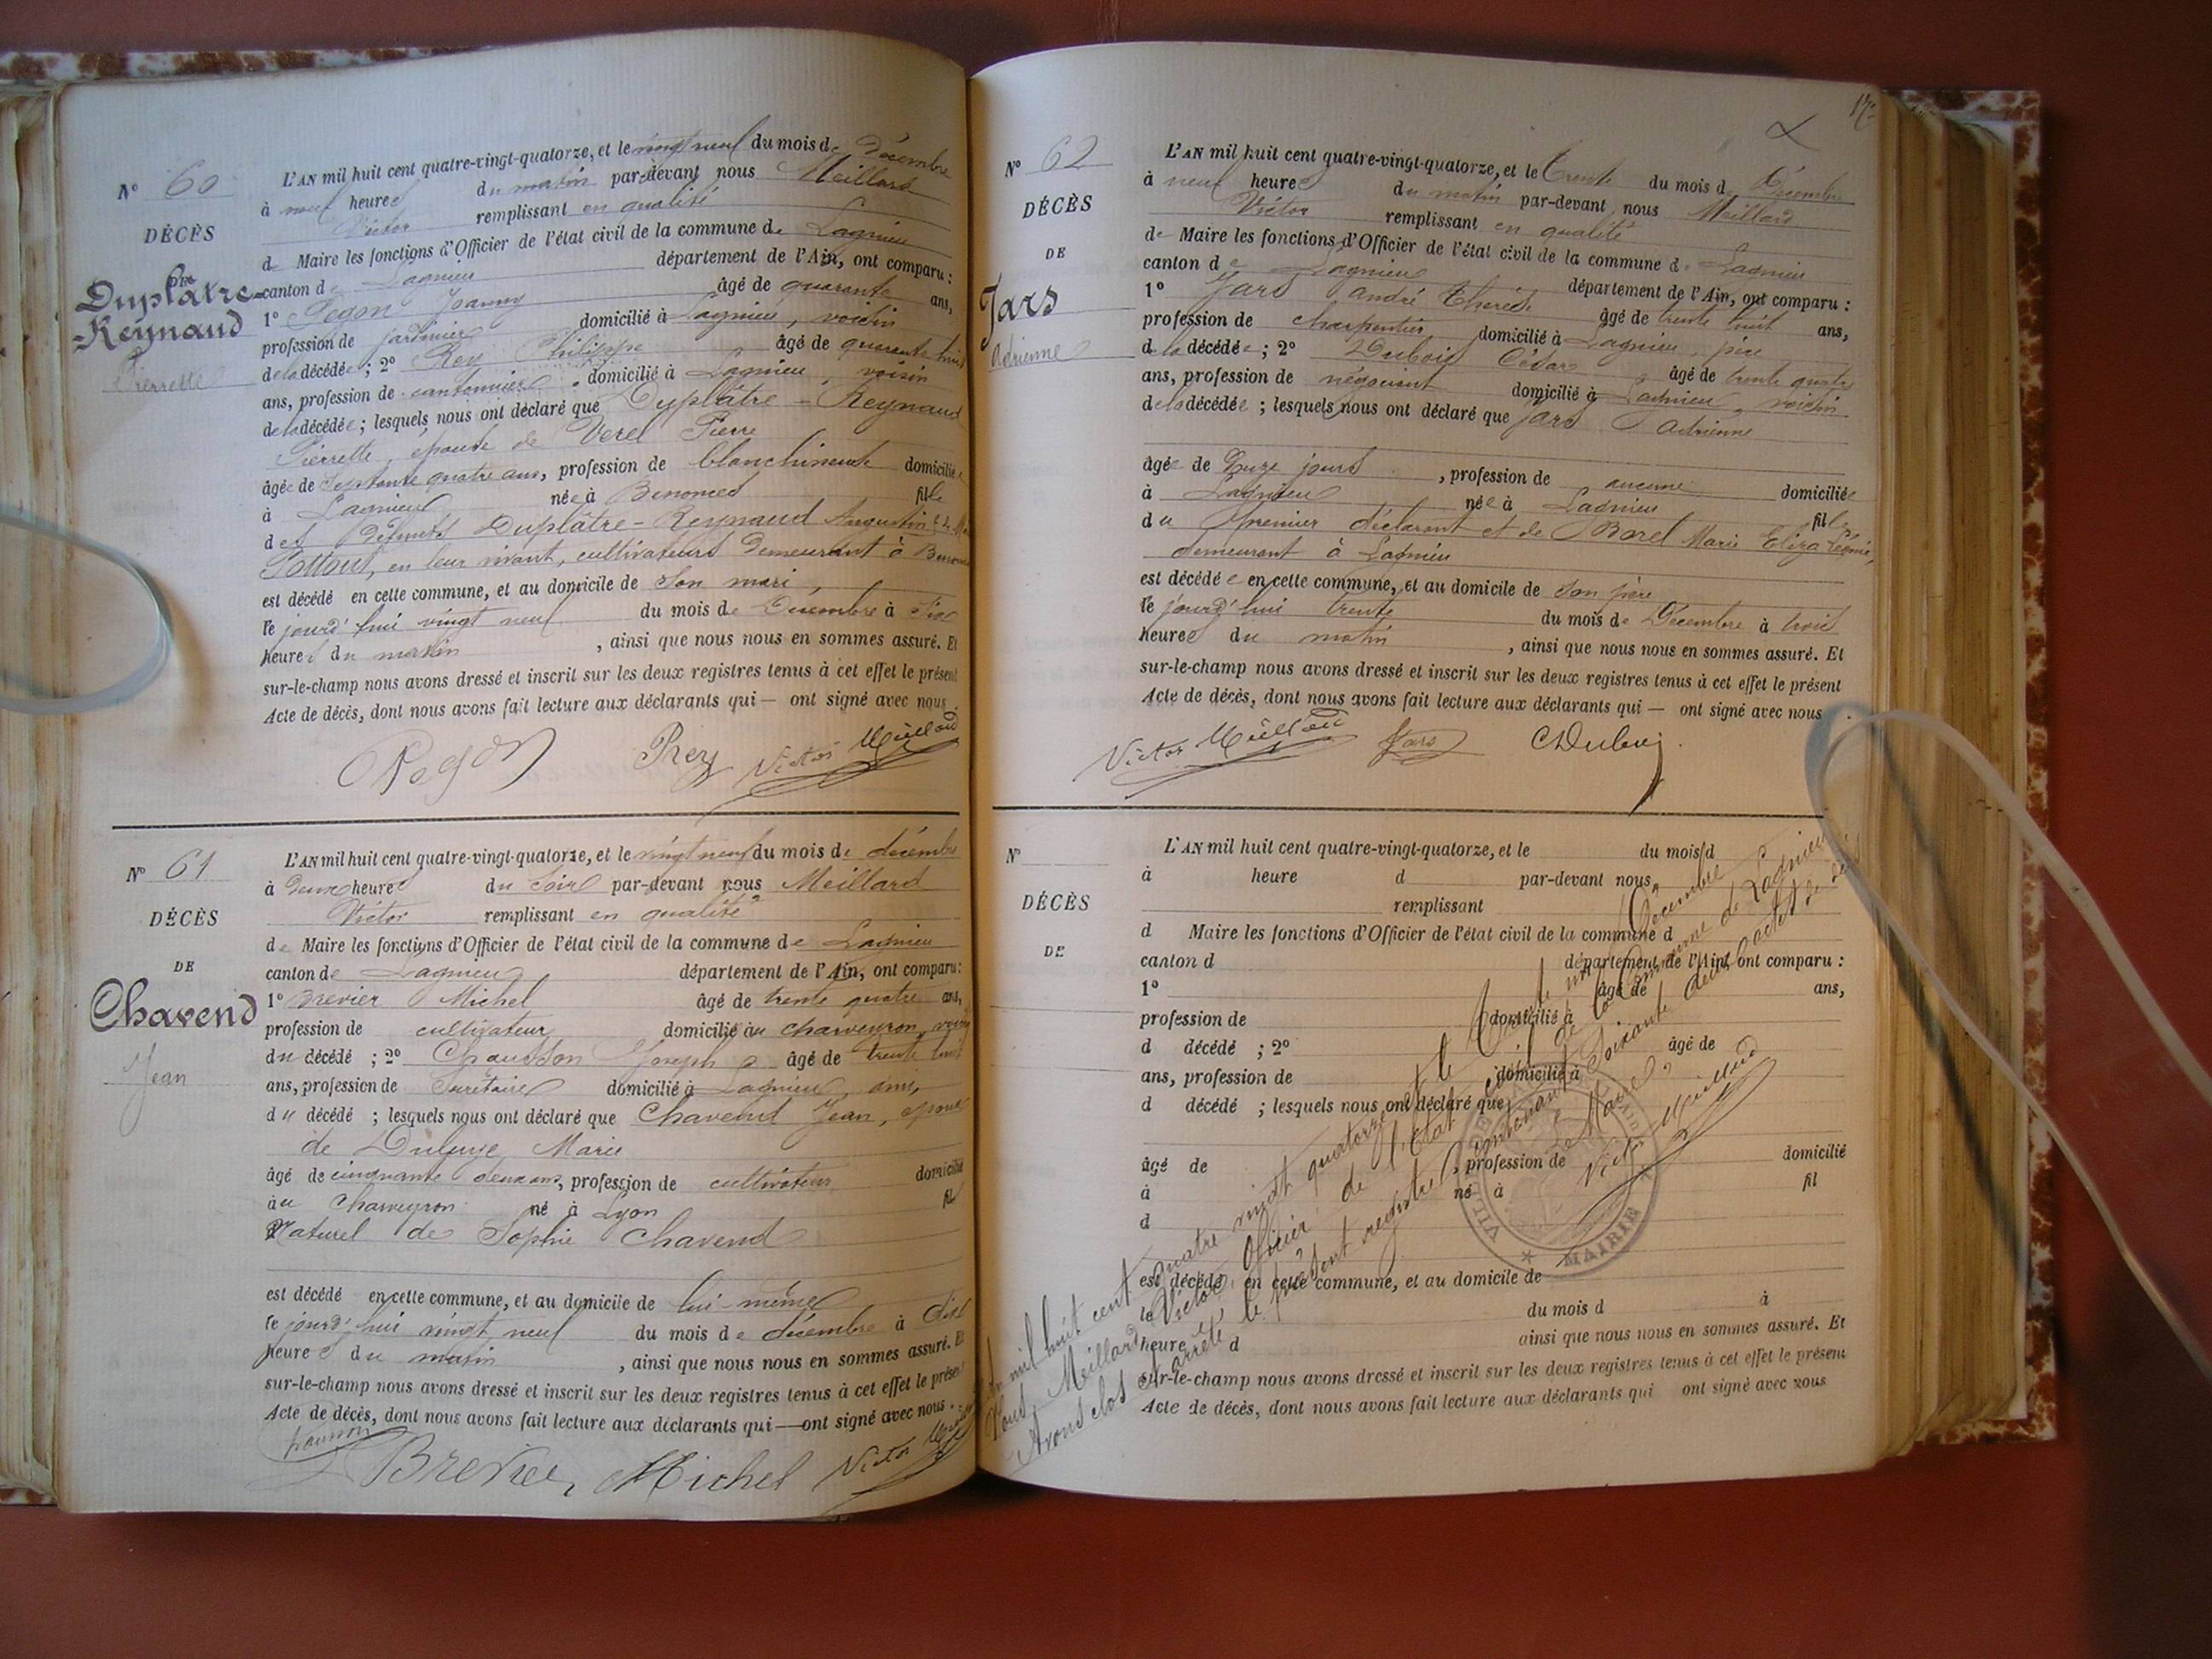 N° 60
DÉCÈS
DE
Duplâtre-
-Reynaud
Pierrette
L'AN mil huit cent quatre-vingt-quatorze, et le vingt neuf du mois de Décembre
à neuf heures du matin par-devant nous Meillard
Victor remplissant en qualité
de Maire les fonctions d'Officier de l'état civil de la commune de Lagnieu
canton de Lagnieu département de l'Ain, ont comparu :
1° Joanny âgé de quarante ans,
profession de jardinier domicilié à Lagnieu, voisin
de la décédée ; 2° Rey Philippe âgé de quarante huit
ans, profession de cantonnier domicilié à Lagnieu, voisin
de la décédée ; lesquels nous ont déclaré que Duplâtre - Reynaud
Pierrette, épouse de Verel Pierre
âgée de septante quatre ans, profession de blanchisseuse domiciliée
à Lagnieu née à Benonces fille
des défunts Duplâtre-Reynaud Augustin
en leur vivant, cultivateurs demeurant à
est décédé en cette commune, et au domicile de son mari
le jourd'hui vingt neuf du mois de Décembre à six
heures du matin, ainsi que nous nous en sommes assuré. Et
sur-le-champ nous avons dressé et inscrit sur les deux registres tenus à cet effet le présent
Acte de décès, dont nous avons fait lecture aux déclarants qui — ont signé avec nous.
Rey Victor Meillard
N° 61
DÉCÈS
DE
Chavend
Jean
L'AN mil huit cent quatre-vingt-quatorze, et le vingt neuf du mois de décembre
à deux heures du soir par-devant nous Meillard
Victor remplissant en qualité
de Maire les fonctions d'Officier de l'état civil de la commune de Lagnieu
canton de Lagnieu département de l'Ain, ont comparu :
1° Brevier Michel âgé de trente quatre ans,
profession de cultivateur domicilié au charveyron, voisin
du décédé ; 2° Chausson Joseph âgé de trente huit
ans, profession de Secrétaire domicilié à Lagnieu, ami,
du décédé ; lesquels nous ont déclaré que Chavend Jean, époux
de Marie
âgé de cinquante deux ans, profession de cultivateur domicilié
au Charveyron né à Lyon fils
Naturel de Sophie Chavend
est décédé en cette commune, et au domicile de lui-même
le jourd'hui vingt neuf du mois de décembre à dix
heures du matin, ainsi que nous nous en sommes assuré. Et
sur-le-champ nous avons dressé et inscrit sur les deux registres tenus à cet effet le présent
Acte de décès, dont nous avons fait lecture aux déclarants qui — ont signé avec nous.
Brevier Michel Victor Meillard
N° 62
DÉCÈS
DE
Jars
Adrienne
L'AN mil huit cent quatre-vingt-quatorze, et le trente du mois de Décembre
à neuf heures du matin par-devant nous Meillard
Victor remplissant en qualité
de Maire les fonctions d'Officier de l'état civil de la commune de Lagnieu
canton de Lagnieu département de l'Ain, ont comparu :
1° Jars André Thérèse âgé de trente huit ans,
profession de charpentier domicilié à Lagnieu, père
de la décédée ; 2° Dubois César âgé de trente quatre
ans, profession de négociant domicilié à Lagnieu, voisin
de la décédée ; lesquels nous ont déclaré que Jars Adrienne
âgée de onze jours, profession de aucune domiciliée
à Lagnieu née à Lagnieu fille
du premier déclarant et de Borel Marie Eliza
demeurant à Lagnieu
est décédée en cette commune, et au domicile de son père
le jourd'hui trente du mois de Décembre à trois
heures du matin, ainsi que nous nous en sommes assuré. Et
sur-le-champ nous avons dressé et inscrit sur les deux registres tenus à cet effet le présent
Acte de décès, dont nous avons fait lecture aux déclarants qui — ont signé avec nous.
Victor Meillard Jars
N°
DÉCÈS
DE
L'AN mil huit cent quatre-vingt-quatorze, et le du mois d
à heure d par-devant nous
remplissant
d Maire les fonctions d'Officier de l'état civil de la commune d
canton d département de l'Ain, ont comparu :
1° âgé de ans,
profession de domicilié à
d décédé ; 2° âgé de
ans, profession de domicilié à
d décédé ; lesquels nous ont déclaré que
âgé de , profession de domicilié
à né à fil
d
est décédé en cette commune, et au domicile de
le du mois d à
heure d ainsi que nous nous en sommes assuré. Et
sur-le-champ nous avons dressé et inscrit sur les deux registres tenus à cet effet le présent
Acte de décès, dont nous avons fait lecture aux déclarants qui ont signé avec nous
L'an mil huit cent quatre vingt quatorze et le trente un Décembre
Nous Meillard Victor, officier de l'état civil de la commune de Lagnieu
Avons clos et arrêté le présent registre contenant soixante deux actes de décès
Le Maire,
Victor Meillard
MAIRIE